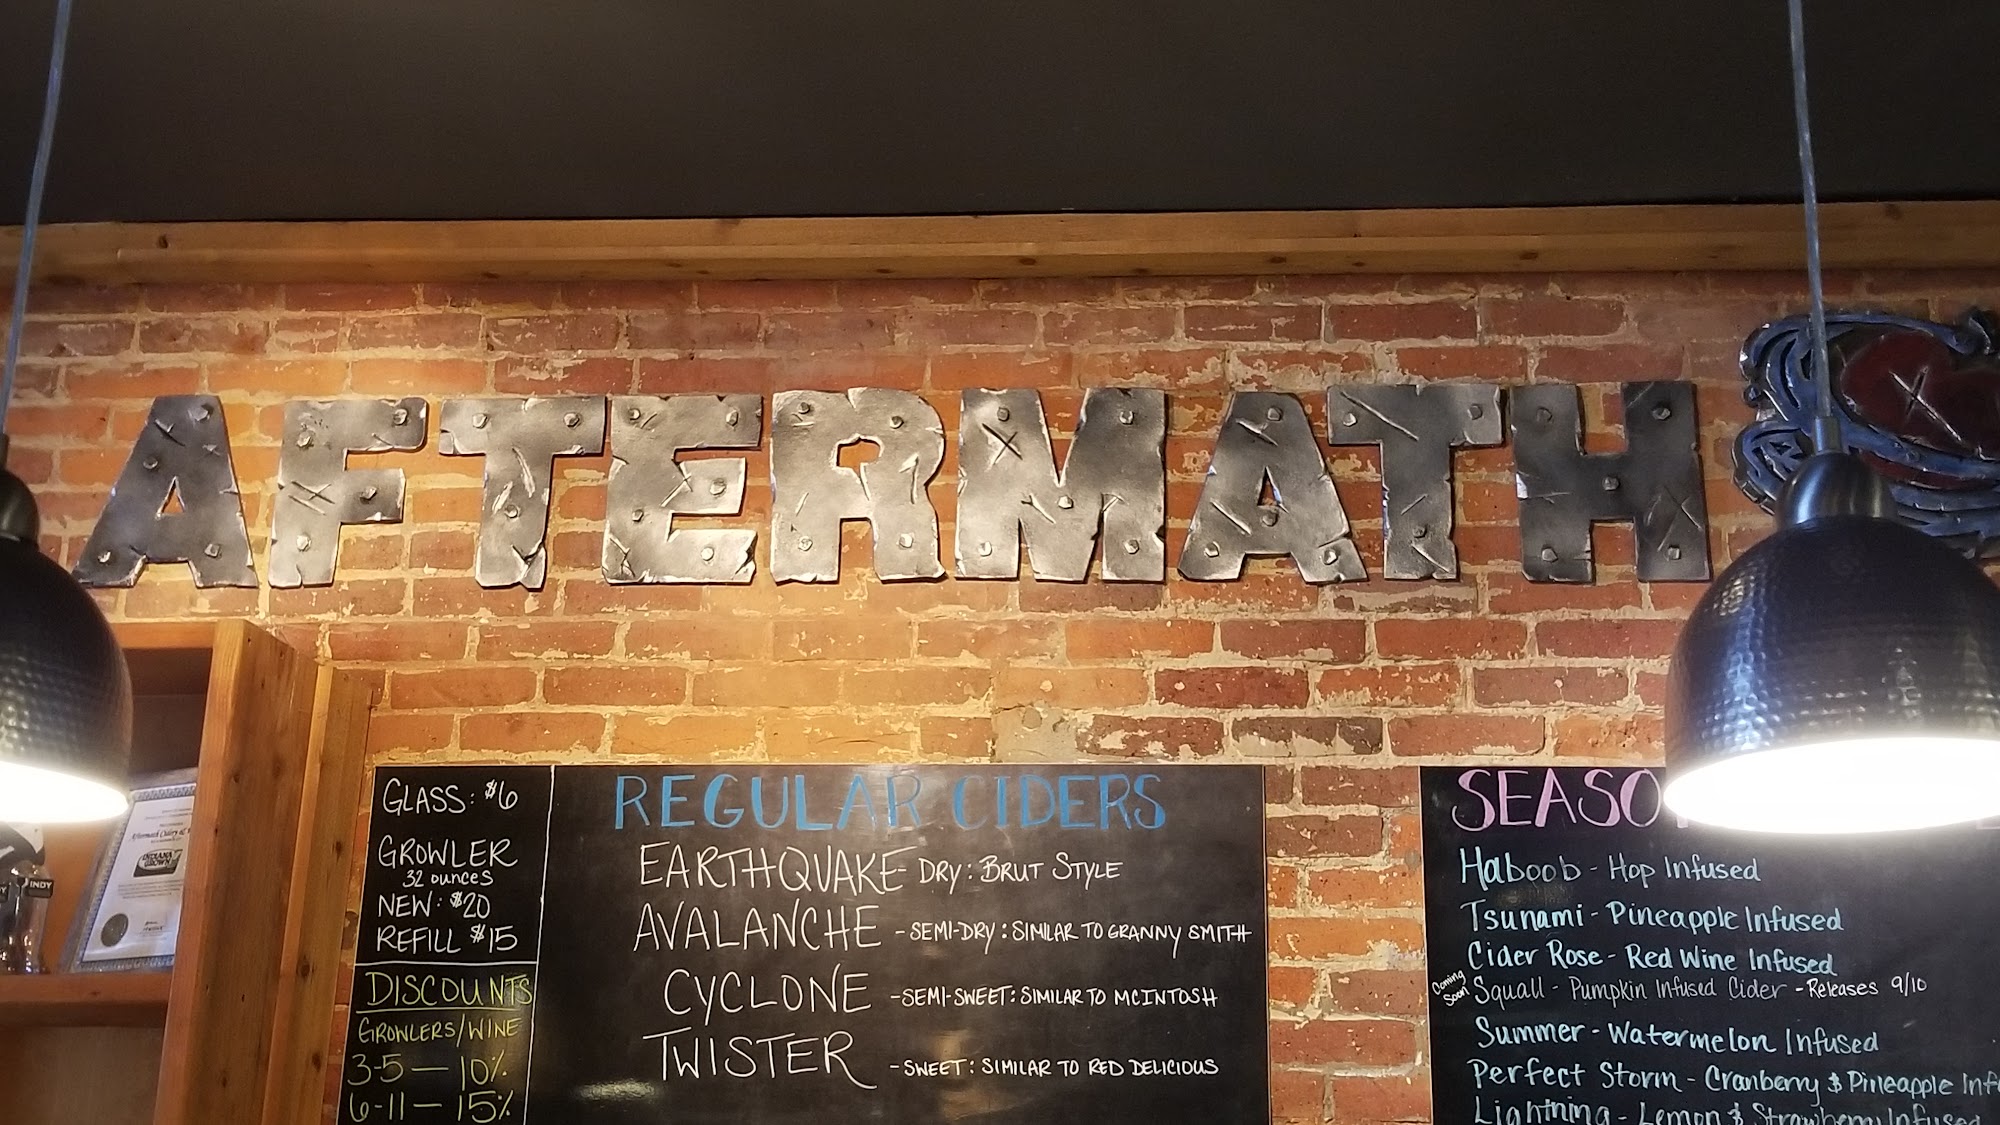 AFTERMATH
GLASS: $6
GROWLER
32 OUNCES
NEW: $20
REFILL $15
DISCOUNTS
GROWLERS/WINE
3-5 — 10%
6-11 — 15%
REGULAR CIDERS
EARTHQUAKE - DRY: BRUT STYLE
AVALANCHE - SEMI-DRY: SIMILAR TO GRANNY SMITH
CYCLONE - SEMI-SWEET: SIMILAR TO MCINTOSH
TWISTER - SWEET: SIMILAR TO RED DELICIOUS
SEASO
Haboob - Hop Infused
Tsunami - Pineapple Infused
Cider Rose - Red Wine Infused
Coming Soon Squall - Pumpkin Infused Cider - Releases 9/10
Summer - Watermelon Infused
Perfect Storm - Cranberry & Pineapple Inf
Lightning - Lemon & Strawberry Infused
INDIANA GROWN
INDY